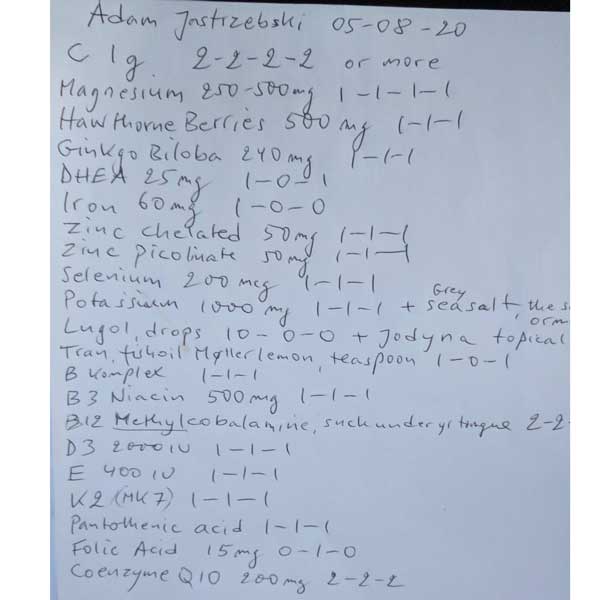 Adam Jastrzebski 05-08-20
C 1g 2-2-2-2 or more
Magnesium 250-500mg 1-1-1-1
Hawthorne Berries 500 mg 1-1-1
Ginkgo Biloba 240 mg 1-1-1
DHEA 25mg 1-0-1
Iron 60mg 1-0-0
Zinc chelated 50mg 1-1-1
Zinc picolinate 50mg 1-1-1
Selenium 200 mcg 1-1-1
Grey
Potassium 1000 mg 1-1-1 + seasalt, the s
or m
Lugol, drops 10-0-0 + Jodyna topical
Tran, fishoil Møller lemon, teaspoon 1-0-1
B Komplex 1-1-1
B3 Niacin 500mg 1-1-1
B12 Methylcobalamine, suck under yr tongue 2-2-
D3 2000 IU 1-1-1
E 400 IU 1-1-1
K2 (MK7) 1-1-1
Pantothenic acid 1-1-1
Folic Acid 15mg 0-1-0
Coenzyme Q10 200mg 2-2-2